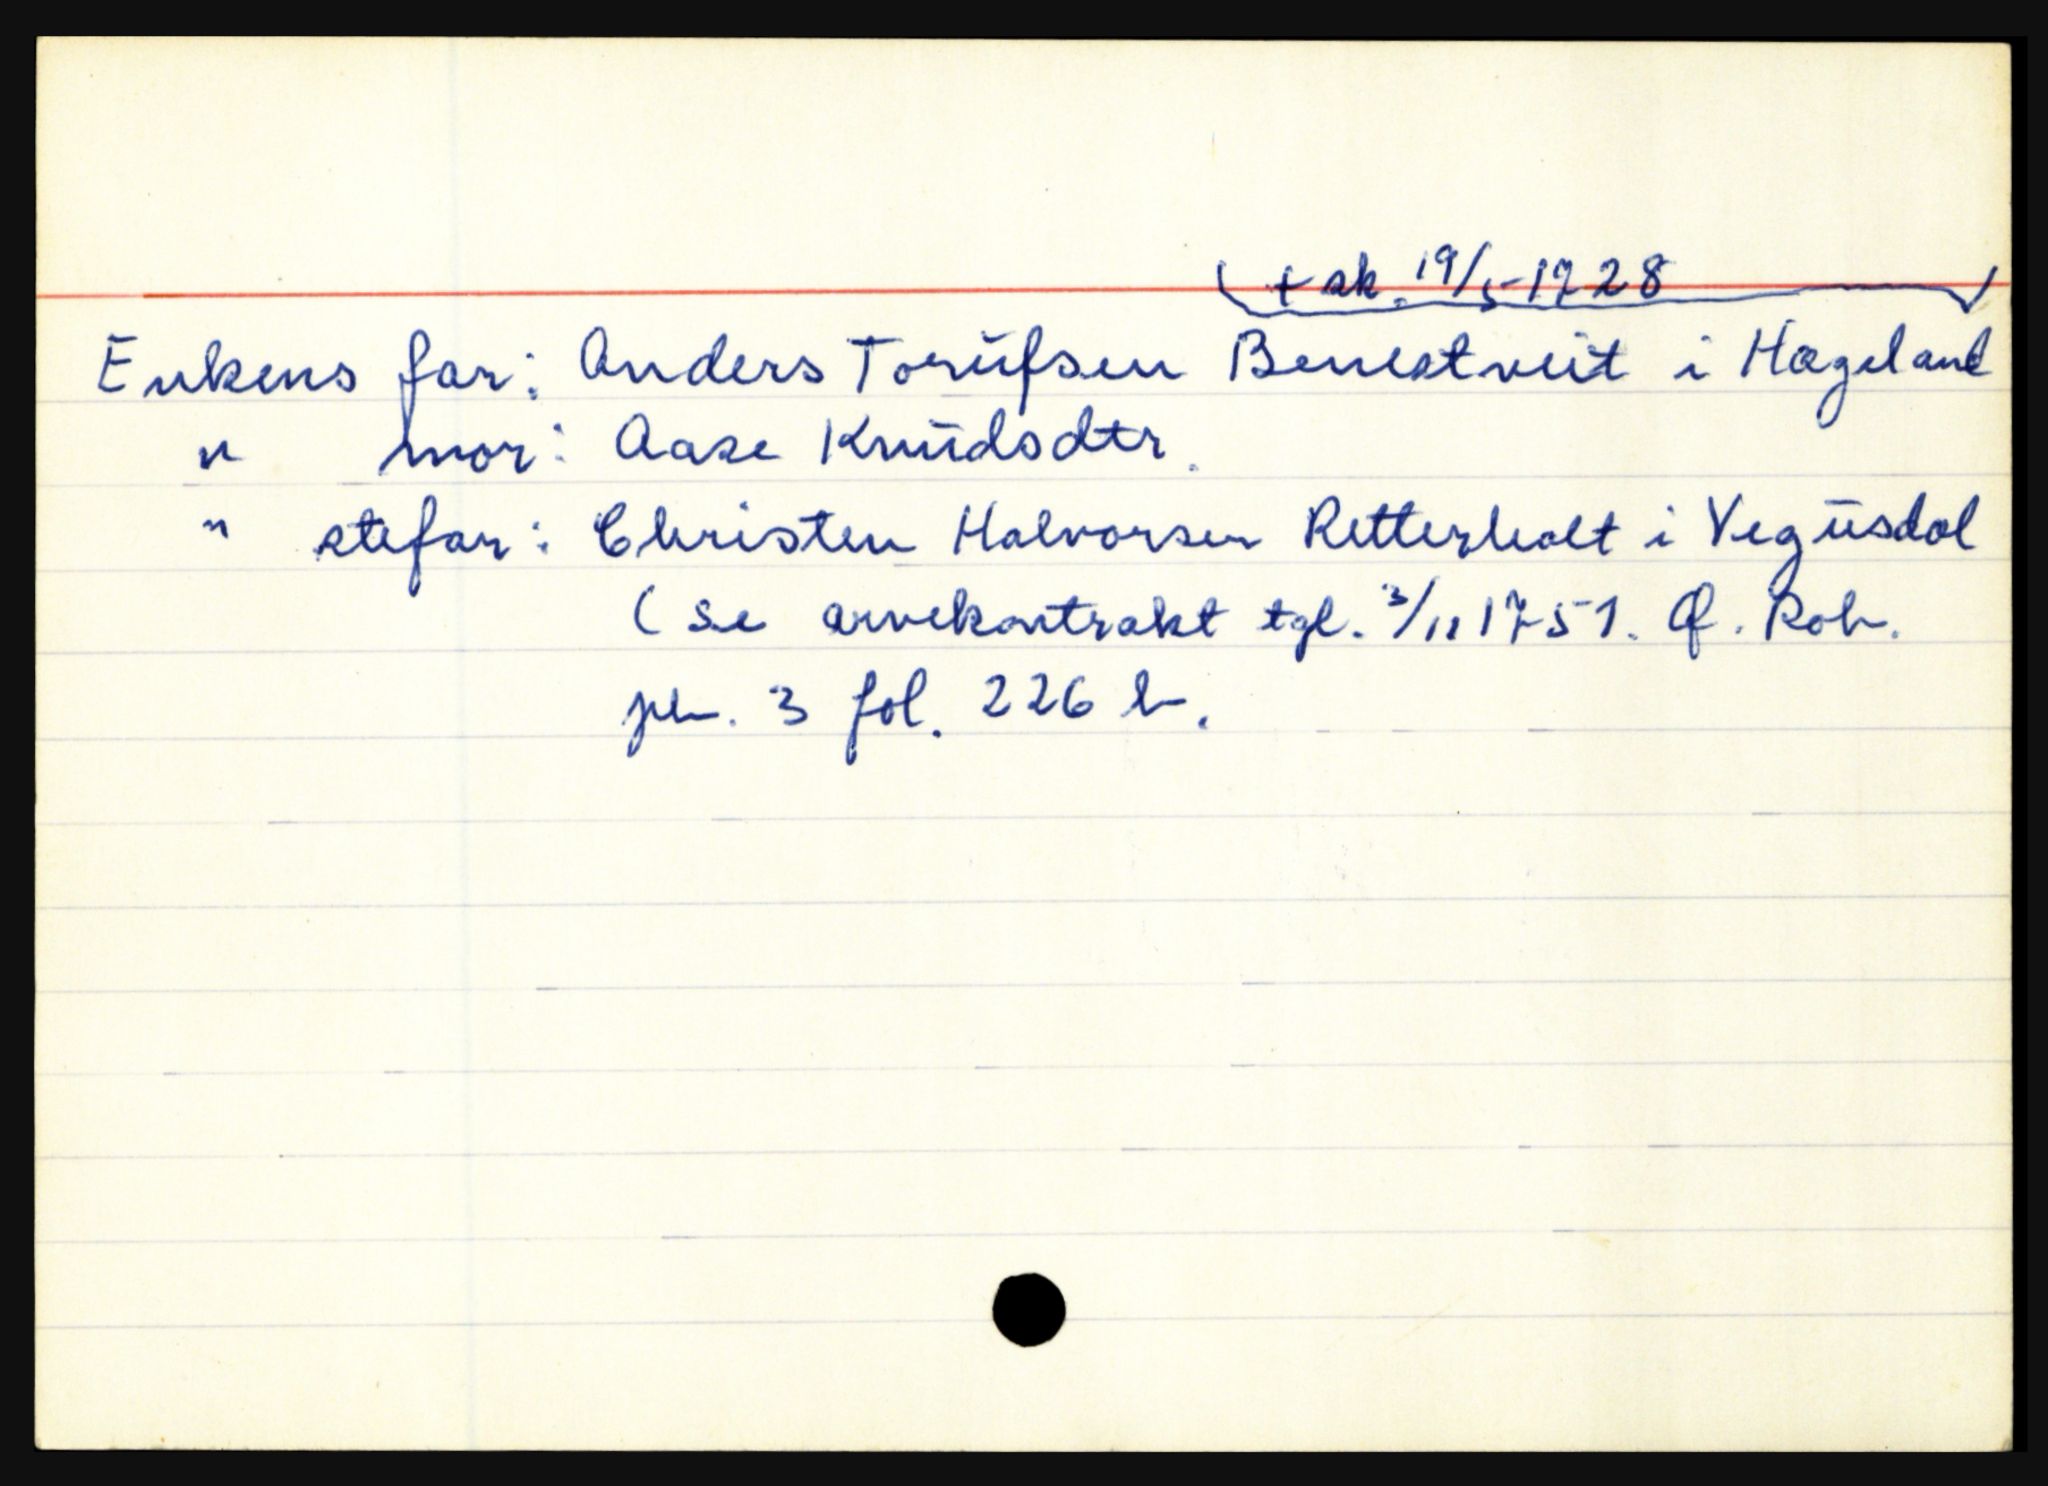 + sk. 19/5-1728
Enkens far: Anders Torüfsen Benestveit i Hægeland
" mor: Aase Knüdsdtr.
" stefar: Christen Halvorsen Retterholt i Vegüsdal
(se arvekontrakt tgl. 3/11 1751. Of. Rob.
pb. 3 fol. 226 b.